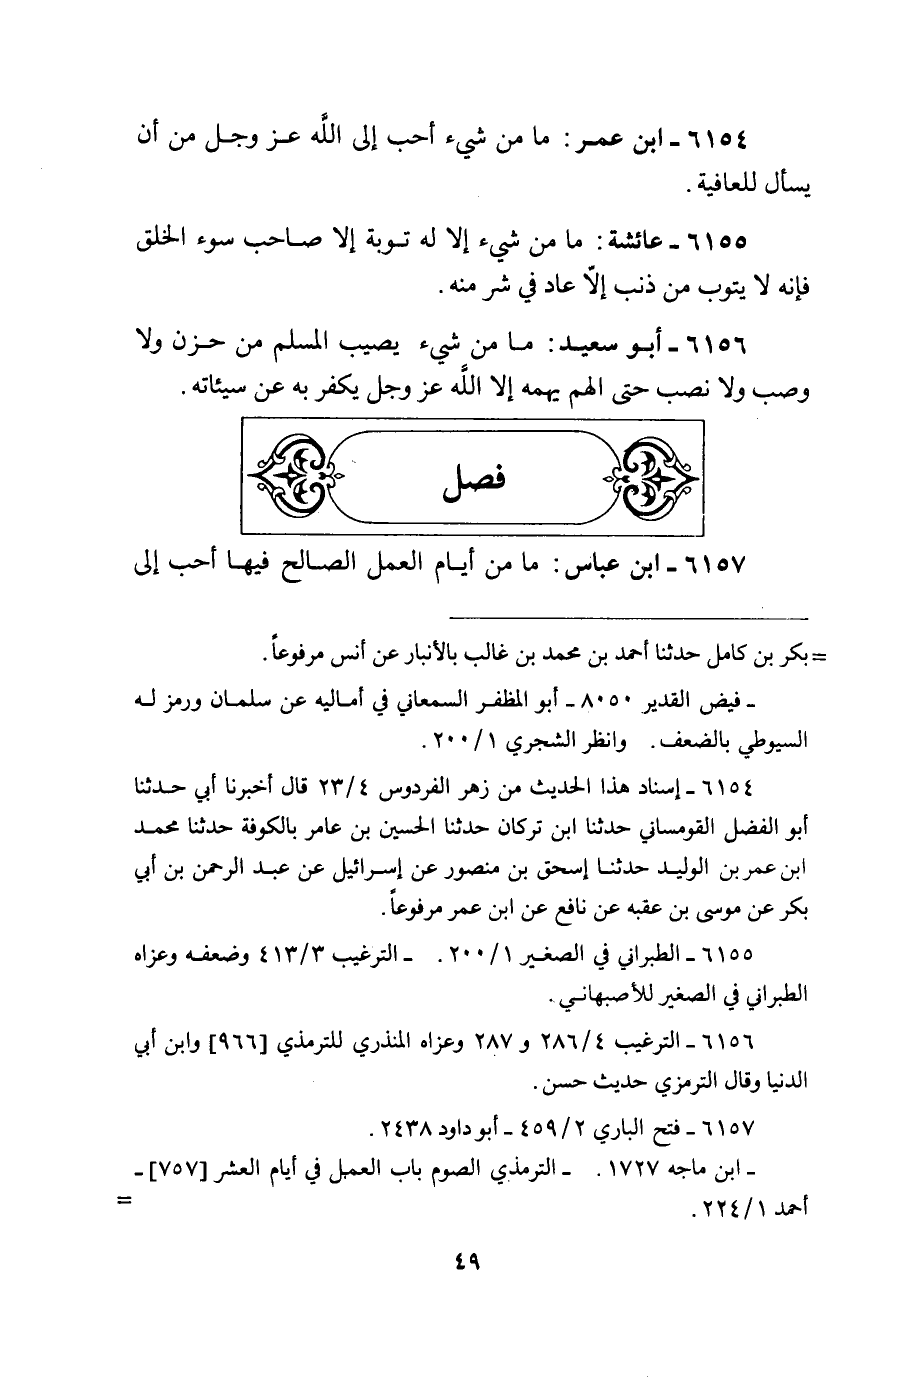 ٦١٥٤ ـ ابن عمـر : ما من شيء أحب إلى اللَّه عـز وجـل من أن
يسأل للعافية .
٦١٥٥ ـ عائشة : ما من شيء إلا له تـوبة إلا صـاحب سوء الخلق
فإنه لا يتوب من ذنب إلاّ عاد في شر منه .
٦١٥٦ ـ أبـو سعيـد : مـا من شيء يصيب المسلم من حـزن ولا
وصب ولا نصب حتى الهم يهمه إلا اللَّه عز وجل يكفر به عن سيئاته .
فصل
٦١٥٧ ـ ابن عباس : ما من أيـام العمل الصـالح فيهـا أحب إلى
= بكر بن كامل حدثنا أحمد بن محمد بن غالب بالأنبار عن أنس مرفوعاً .
ـ فيض القدير ٨٠٥٠ ـ أبو المظفـر السمعاني في أمـاليه عن سلمـان ورمز لـه
السيوطي بالضعف . وانظر الشجري ٢٠٠/١ .
٦١٥٤ ـ إسناد هذا الحديث من زهر الفردوس ٢٣/٤ قال أخبرنا أبي حـدثنا
أبو الفضل القومساني حدثنا ابن تركان حدثنا الحسين بن عامر بالكوفة حدثنا محمـد
ابن عمر بن الوليـد حدثنـا إسحق بن منصور عن إسـرائيل عن عبـد الرحمن بن أبي
بكر عن موسى بن عقبه عن نافع عن ابن عمر مرفوعاً .
٦١٥٥ ـ الطبراني في الصغـير ٢٠٠/١ . ـ الترغيب ٤١٣/٣ وضعفـه وعزاه
الطبراني في الصغير للأصبهانـي .
٦١٥٦ ـ الترغيب ٢٨٦/٤ و ٢٨٧ وعزاه المنذري للترمذي [٩٦٦] وابن أبي
الدنيا وقال الترمزي حديث حسن .
٦١٥٧ ـ فتح الباري ٤٥٩/٢ ـ أبو داود ٢٤٣٨ .
ـ ابن ماجه ١٧٢٧ . ـ الترمذي الصوم باب العمل في أيام العشر [٧٥٧] ـ
أحمد ٢٢٤/١ .
=
٤٩